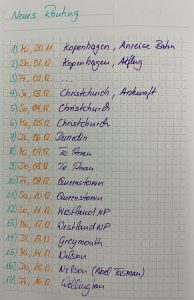 Neues Routing
1) Mi, 30.11. Kopenhagen, Anreise Bahn
2) Do, 01.12. Kopenhagen, Abflug
3) Fr, 02.12. ...
4) Sa, 03.12. Christchurch, Ankunft
5) So, 04.12. Christchurch
6) Mo, 05.12. Christchurch
7) Di, 06.12. Dunedin
8) Mi, 07.12. Te Anau
9) Do, 08.12. Te Anau
10) Fr, 09.12. Queenstown
11) Sa, 10.12. Queenstown
12) So, 11.12. Westland NP
13) Mo, 12.12. Westland NP
14) Di, 13.12. Greymouth
15) Mi, 14.12. Nelson
16) Do, 15.12. Nelson (Abel Tasman)
17) Fr, 16.12. Wellington